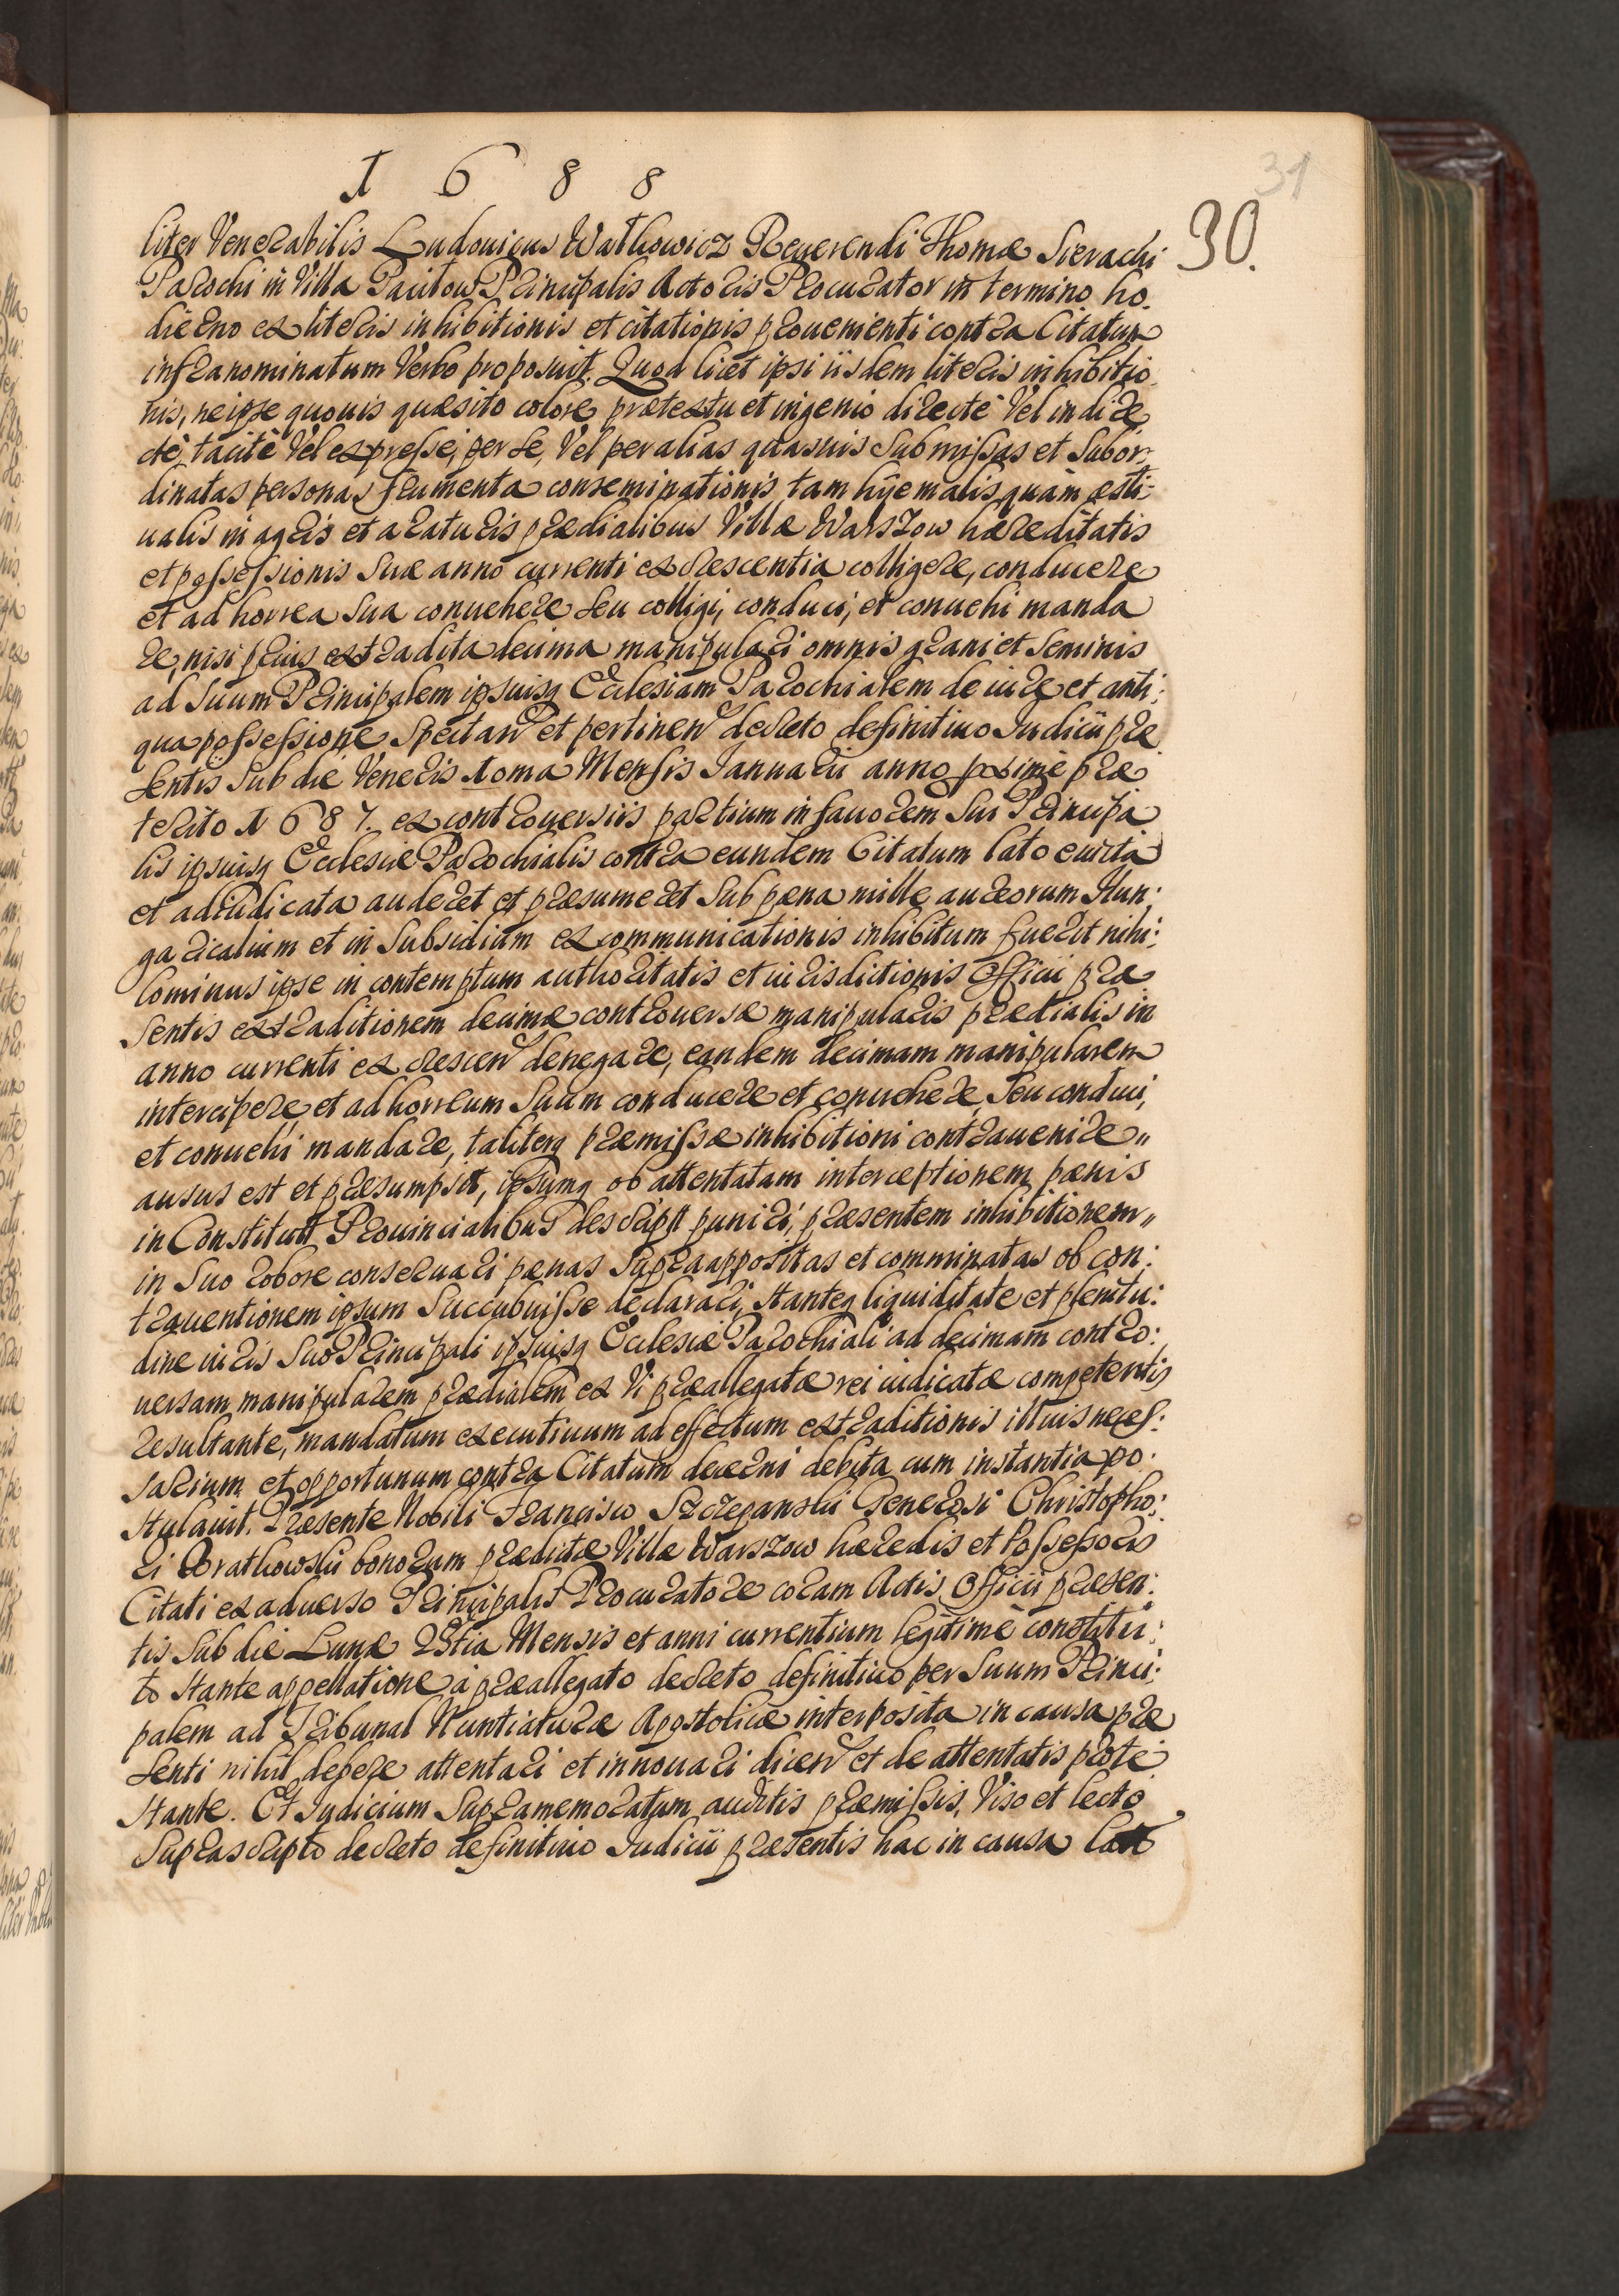 1 6 8 8
31
30.
liter Venerabilis Ludouicus Wathowicz Reuerendi Thomæ Sierachi
Parochi in Villa Pacitow Principalis Actoris Procurator in termino ho.
dierno ex literis inhibitionis et citationis prouenienti contra Citatum
infranominatum Verbo proposuit. Quod licet ipsi iisdem literis inhibitio
nis, ne ipse quouis quæsito colore prætextu et ingenio directè Vel indire
ctè, tacitè Vel expresse, per se, Vel per alias quasuis submissas et subor
dinatas personas frumenta conseminationis tam hyemalis quàm æsti:
ualis in agris et araturis prædialibus Villæ Warszow hæreditatis
et possessionis suæ anno currenti excrescentia colligere, conducere
et ad horrea sua conuehere seu colligi, conduci, et conuehi manda
re, nisi prius extradita decima manipulari omnis grani et seminis
ad suum Principalem ipsiusq Ecclesiam Parochialem de iure et anti:
qua possessione spectan et pertinen decreto definitiuo Judicii præ
sentis sub die Veneris 10ma Mensis Januarii anno proximè præ
terito 1687. ex controuersiis partium in fauorem sui Principa
lis ipsiusq Ecclesiæ Parochialis contra eundem Citatum lato euicta
et adiudicata auderet et præsumeret sub pæna mille aureorum Hun;
garicalium et in subsidium excommunicationis inhibitum fuerit nihi:
lominus ipse in contemptum authoritatis et iurisdictionis Officii præ
sentis extraditionem decimæ controuersæ manipularis prædialis in
anno currenti excrescen denegare, eandem decimam manipularem
intercipere, et ad horreum suum conducere et conuehere, seu conduci,
et conuehi mandare, taliterq præmissæ inhibitioni contrauenire
ausus est et præsumpsit, ipsumq ob attentatam interceptionem pænis
in Constitutt Prouincialibus descriptt puniri, præsentem inhibitionem
in suo robore conseruari pænas supraappositas et comminatas ob con:
trauentionem ipsum succubuisse declarari, stanteq liquiditate et plenitu:
dine iuris suo Principali ipsiusq Ecclesiæ Parochiali ad decimam contro:
uersam manipularem prædialem ex Vi præallegatæ rei iudicatæ competentis
resultante, mandatum executiuum ad effectum extraditionis illius neces:
sarium et opportunum contra Citatum decerni debita cum instantia po.
stulauit. Præsente Nobili Francisco Szczepanski Generosi Christopho:
ri Brathowski bonorum prædictæ Villæ Warszow hæredis et Possessoris
Citati ex aduerso Principalis Procuratore coram Actis Officii præsen:
tis sub die Lunæ 2stia Mensis et anni currentium legitimè constitu:
to stante appellatione à præallegato decreto definitiuo per suum Princi:
palem ad Tribunal Nuntiaturæ Apostolicæ interposita in causa præ
senti nihil debere attentari et innouari dicen et de attentatis prote
stante. Et Judicium supramemoratum auditis præmissis, Viso et lecto
suprascripto decreto definitiuo Judicii præsentis hac in causa lato